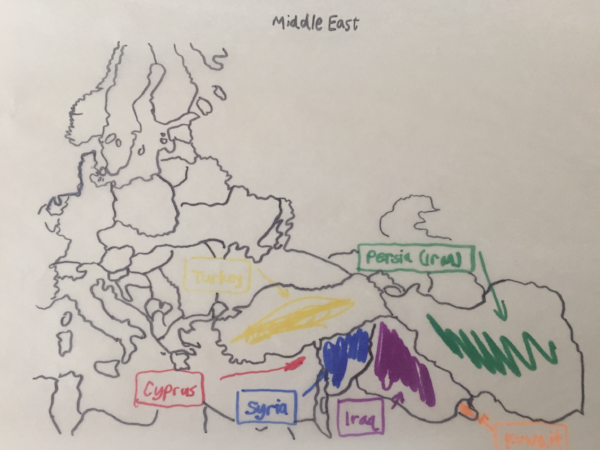 Middle East
Persia (Iran)
Turkey
Cyprus
Syria
Iraq
Kuwait